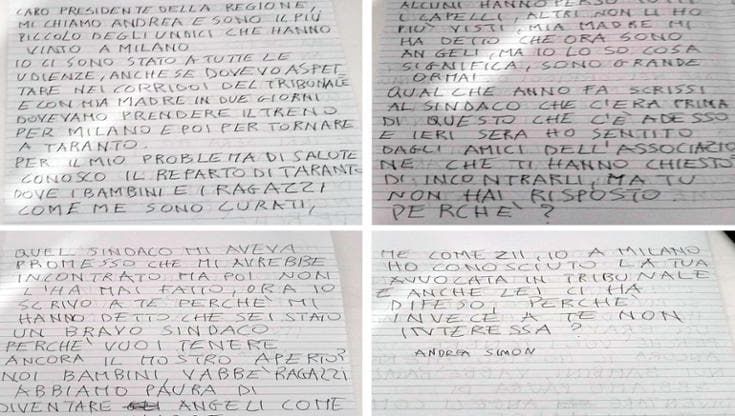 CARO PRESIDENTE DELLA REGIONE,
MI CHIAMO ANDREA E SONO IL PIÚ
PICCOLO DEGLI UNDICI CHE HANNO
VINTO A MILANO
IO CI SONO STATO A TUTTE LE
UDIENZE, ANCHE SE DOVEVO ASPET
TARE NEI CORRIDOI DEL TRIBUNALE
E CON MIA MADRE IN DUE GIORNI
DOVEVAMO PRENDERE IL TRENO
PER MILANO E POI PER TORNARE
A TARANTO.
PER IL MIO PROBLEMA DI SALUTE
CONOSCO IL REPARTO DI TARANTO
DOVE I BAMBINI E I RAGAZZI
COME ME SONO CURATI,
ALCUNI HANNO PERSO TUTTI
I CAPELLI, ALTRI NON LI HO
PIÙ VISTI, MIA MADRE MI
HA DETTO CHE ORA SONO
ANGELI, MA IO LO SO COSA
SIGNIFICA, SONO GRANDE
ORMAI
QUALCHE ANNO FA SCRISSI
AL SINDACO CHE C'ERA PRIMA
DI QUESTO CHE C'È ADESSO
E IERI SERA HO SENTITO
DAGLI AMICI DELL'ASSOCIAZIO
NE CHE TI HANNO CHIESTO
DI INCONTRARLI, MA TU
NON HAI RISPOSTO.
PERCHÈ?
QUEL SINDACO MI AVEVA
PROMESSO CHE MI AVREBBE
INCONTRATO MA POI NON
L'HA MAI FATTO, ORA IO
SCRIVO A TE PERCHÈ MI
HANNO DETTO CHE SEI STATO
UN BRAVO SINDACO
PERCHÈ VUOI TENERE
ANCORA IL MOSTRO APERTO?
NOI BAMBINI, VABBÈ RAGAZZI
ABBIAMO PAURA DI
DIVENTARE ANGELI COME
ME COME ZII, IO A MILANO
HO CONOSCIUTO LA TUA
AVVOCATA IN TRIBUNALE
E ANCHE LEI CI HA
DIFESO, PERCHÈ
INVECE A TE NON
INTERESSA?
ANDREA SIMON